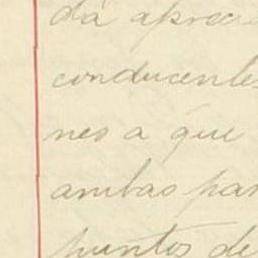 da aprecia
conducentes
nes a que
ambas par
puntos de